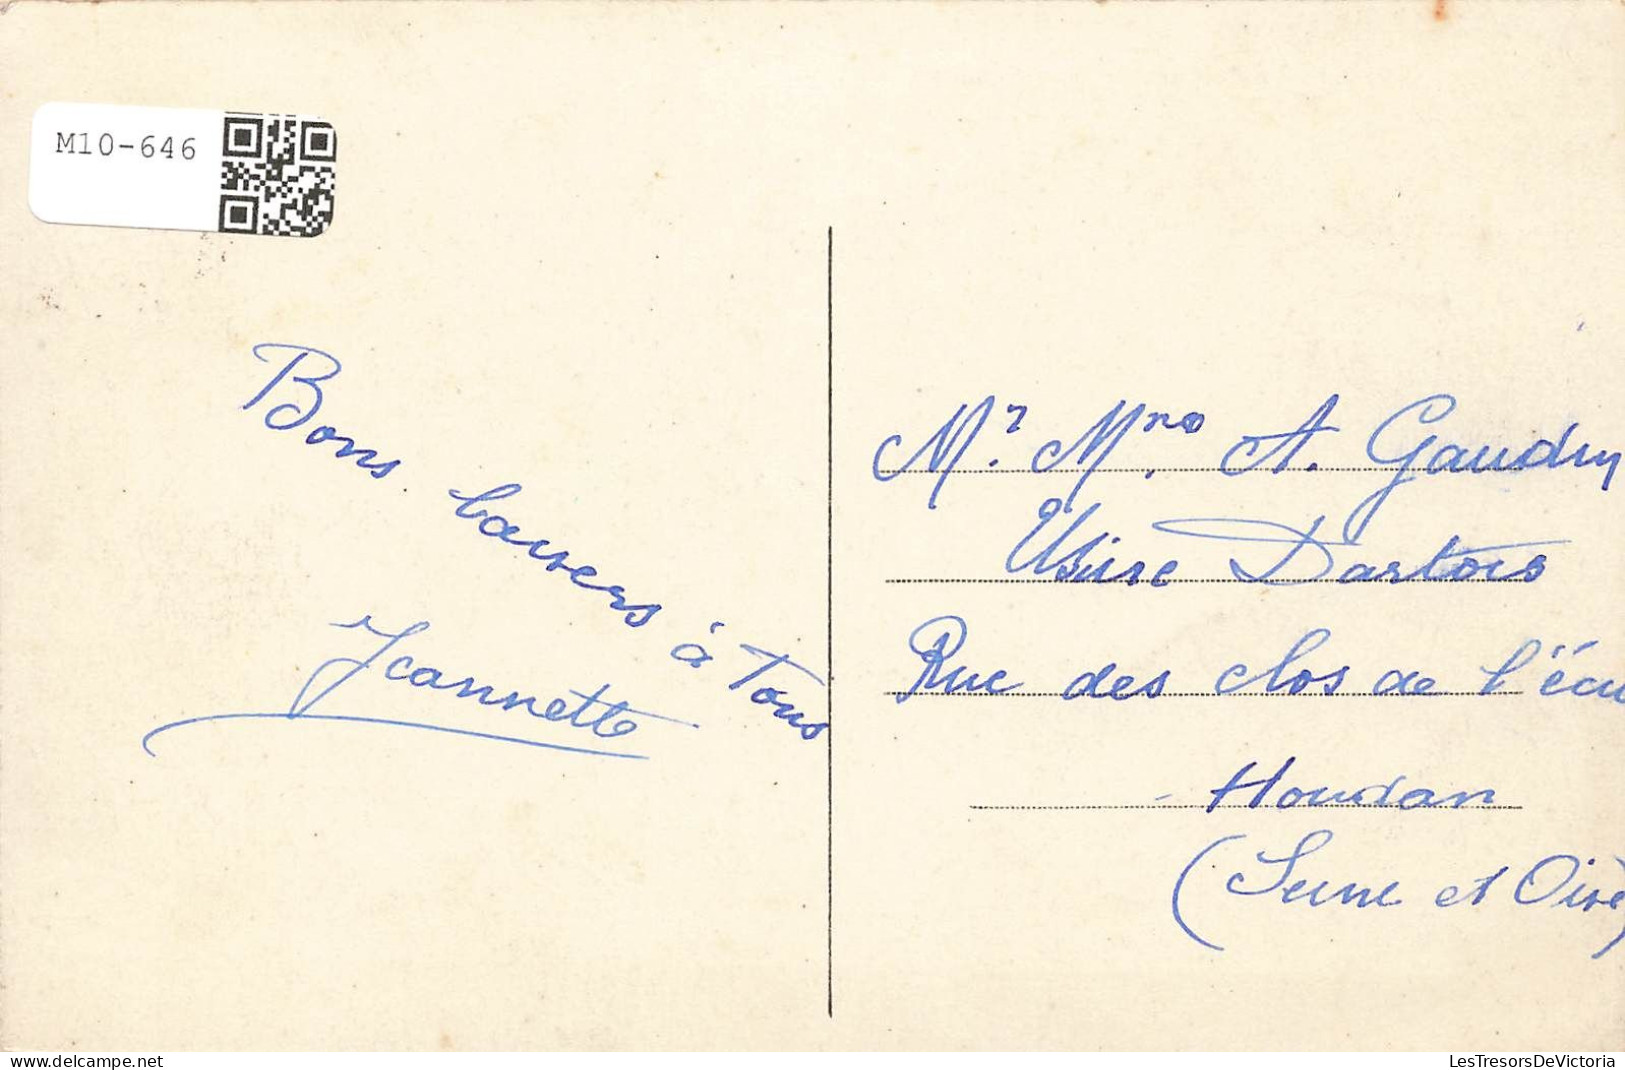 M10-646
Bons baisers à Tous
Jeannette
Mr. Mme. A. Gaudry
Usine Dartois
Rue des clos de l'écu
Houdan
(Seine et Oise)
LesTresorsDeVictoria